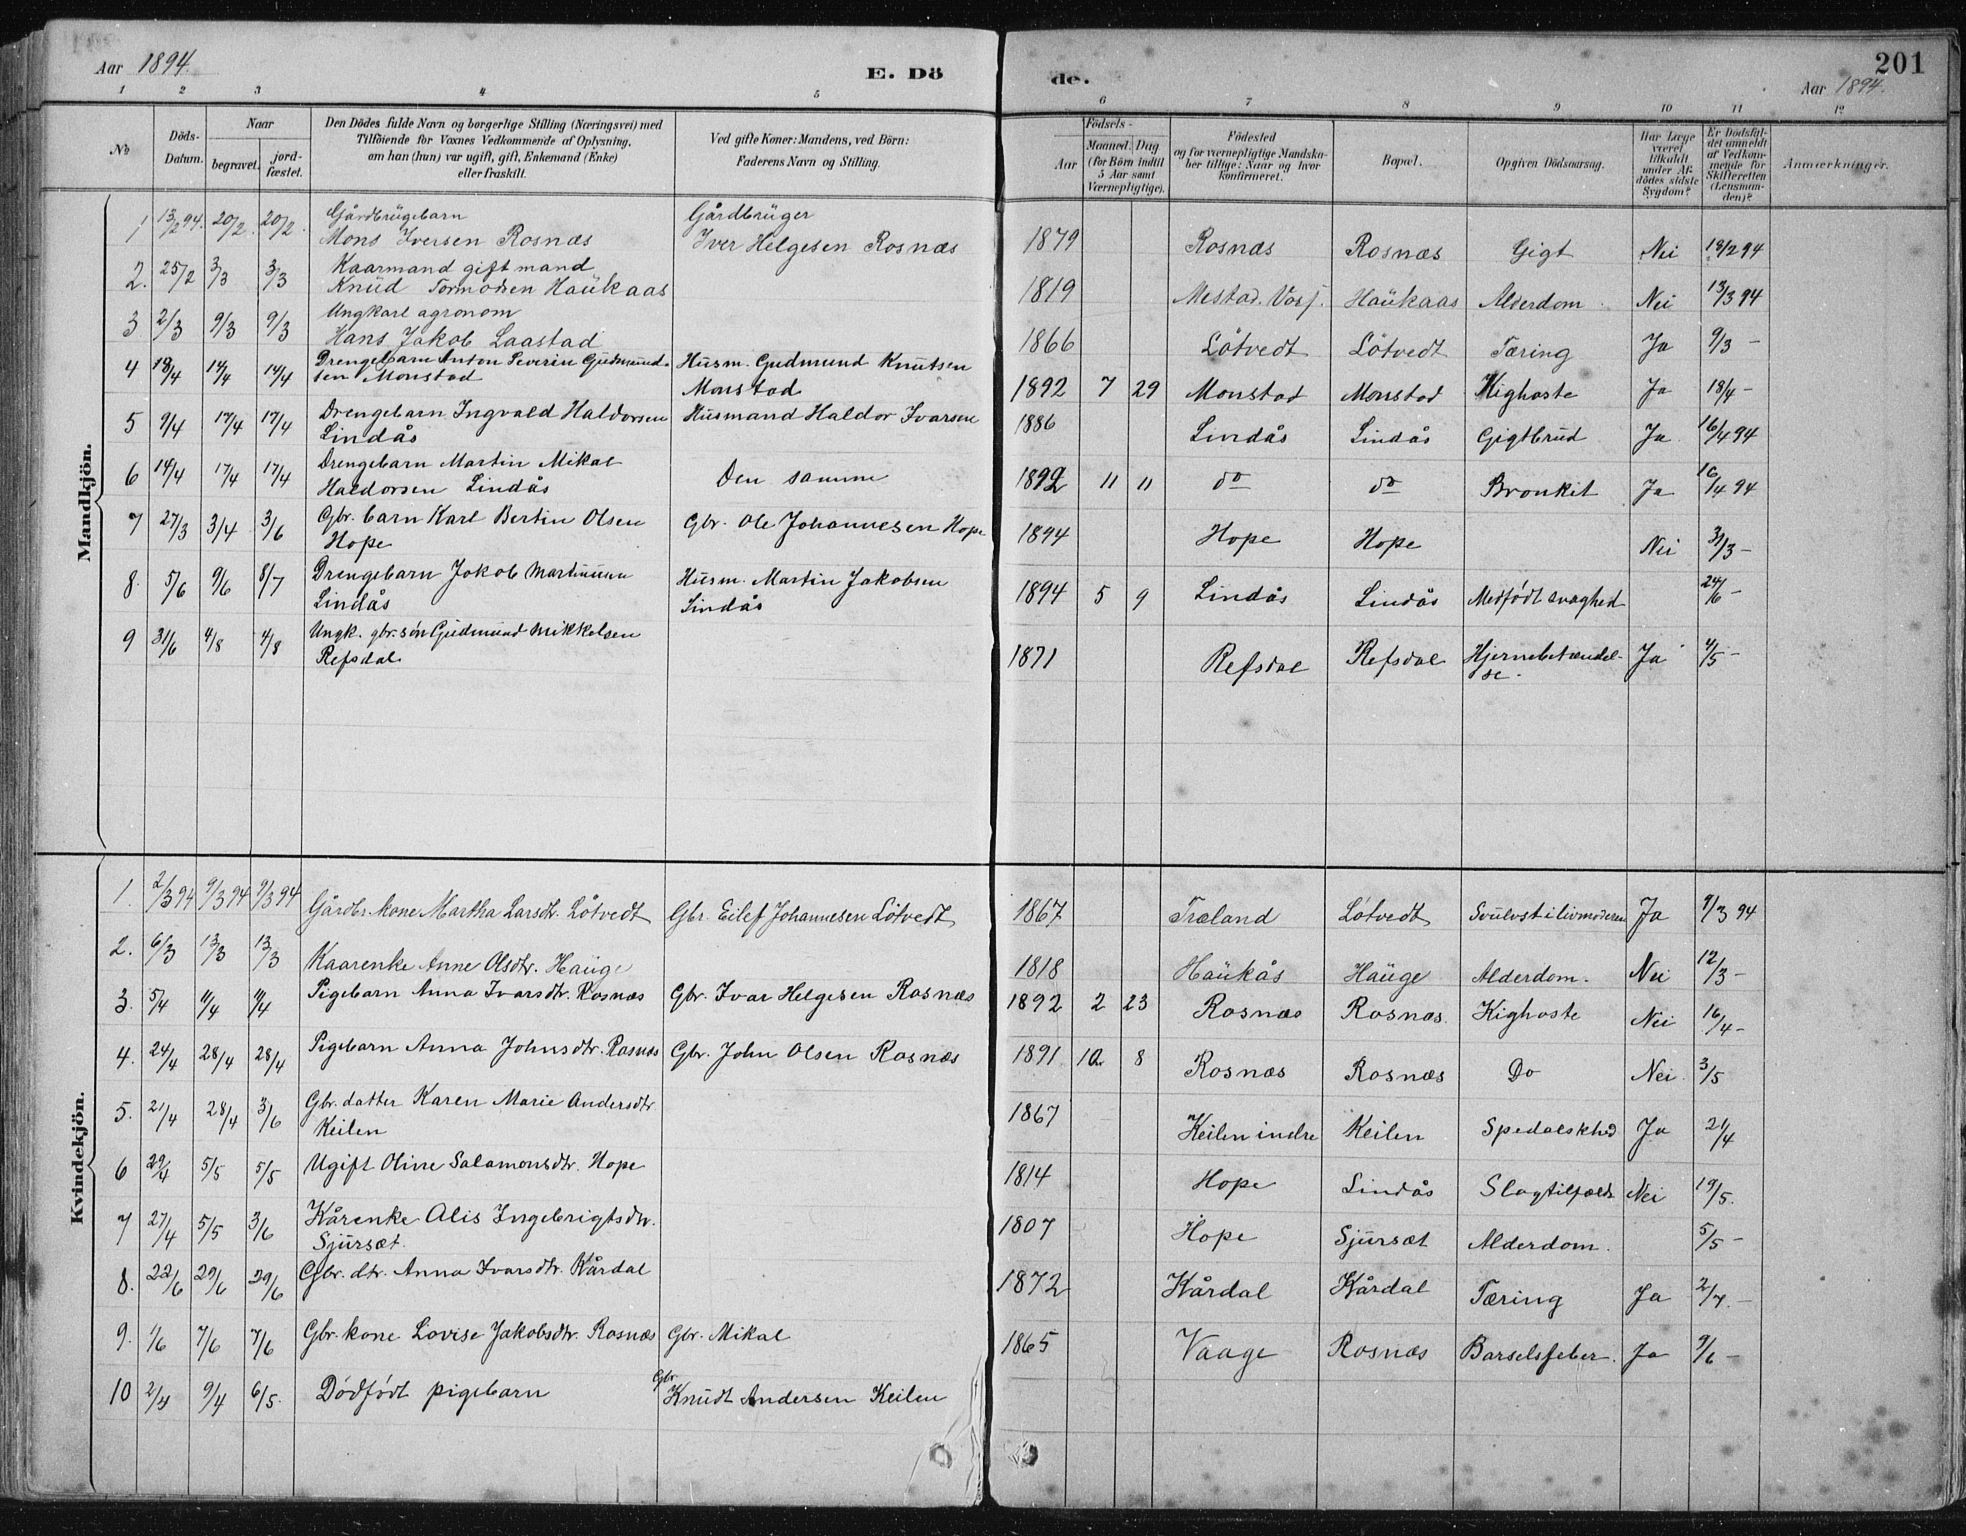 Aar 1894.
E. Dö
de.
201
Aar 1894.
1 2 3 4 5 6 7 8 9 10 11 12
No
Döds-Datum.
Naar
begravet.
jord-fæstet.
Den Dödes fulde Navn og borgerlige Stilling (Næringsvei) med
Tilföiende for Voxnes Vedkommende af Oplysning,
om han (hun) var ugift, gift, Enkemand (Enke)
eller fraskilt.
Ved gifte Koner: Mandens, ved Börn:
Faderens Navn og Stilling.
Födsels-
Aar
Maaned.
Dag
(for Börn indtil
5 Aar samt
Værnepligtige).
Födested
og for værnepligtige Mandska-
ber tillige: Naar og hvor
konfirmeret.
Bopæl.
Opgiven Dödsaarsag.
Har Læge
været
tilkaldt
under Af-
dödes sidste
Sygdom?
Er Dödsfal-
det anmeldt
af Vedkom-
mende for
Skifteretten
(Lensman-
den)?
Anmærkninger.
Mandkjön.
1 13/2 94. 20/2. 20/2. Gårdbrügebarn Gårdbrüger
Mons Iversen Rosnæs Iver Helgesen Rosnæs 1879 Rosnæs Rosnæs Gigt Nei 18/2 94
2. 25/2 3/3 3/3 Kaarmand gift mand
Knüd Tormodsen Haükaas 1819 Mestad. Vosf. Haükaas Alderdom Nei 13/3 94
3 2/3 9/3 9/3 Ungkarl agronom
Hans Jakob Laastad 1866 Lötvedt Lötvedt Tæring Ja 9/3 -
4 18/4 14/4 14/4 Drengebarn Anton Severin Gudmund- Husm. Gudmund Knutsen
sen Monstad Monstad 1892 7 29 Monstad Monstad Kighoste Ja 18/4 -
5 9/4 17/4 17/4 Drengebarn Ingvald Haldorsen Husmand Haldor Ivarsen 1886
Lindås Lindås Lindås Gigtbrud Ja 16/4 94
6 14/4 17/4 17/4 Drengebarn Martin Mikal Den samme 1892 11 11 do do Bronkit Ja 16/4 94
Haldorsen Lindås
7 27/3 3/4 3/6 Gbr. barn Karl Bertin Olsen Gbr. Ole Johannesen Hope 1894 Hope Hope Nei 31/3 -
Hope
8. 5/6 9/6 8/7 Drengebarn Jakob Martinusen Husm. Martin Jakobsen 1894 5 9 Lindås Lindås Medfödt svaghed 24/6 -
Lindås Lindås
9 31/6 4/8 4/8 Ungk. gbr. sön Gudmund Mikkelsen 1871 Refsdal Refsdal Hjernebetændel- Ja 4/5 -
Refsdal se.
Kvindekjön.
1. 2/3 94 9/3 94 9/3 94 Gårdbr. kone Martha Larsdt. Lötvedt Gbr. Eilef Johannesen Lötvedt 1867 Træland Lötvedt Svulvst i livmoderen Ja 9/3 94
2. 6/3 13/3 13/3 Kaarenke Anne Olsdtr. Haüge 1818 Haükås Haüge Alderdom. Nei 12/3 -
3. 5/4 11/4 11/4 Pigebarn Anna Ivarsdtr. Rosnæs Gbr. Ivar Helgesen Rosnæs 1892 2 23 Rosnæs Rosnæs. Kighoste Nei 16/4 -
4. 24/4 28/4 28/4 Pigebarn Anna Johnsdtr. Rosnæs Gbr. John Olsen Rosnæs 1891. 10. 8 Rosnæs Rosnæs Do Nei. 3/5
5. 21/4 28/4 3/6 Gbr. datter Karen Marie Andersdtr 1867 Keilen indre Keilen Spedalskhed Ja 21/4
Keilen
6 29/4 5/5 5/5 Ugift Oline Salamonsdtr. Hope 1814 Hope Lindås Slagtilfælde Nei 19/5.
7 27/4 5/5 3/6 Kårenke Alis Ingebrigtsdtr. 1807 Hope Sjürsæt Alderdom. 5/5 -
Sjürsæt.
8. 22/6 29/6 29/6 Gbr. dtr. Anna Ivarsdtr. Kårdal 1872 Kårdal Kårdal Tæring Ja 2/7. -
9. 1/6 7/6 7/6 Gbr. kone Lovise Jakobsdtr. Rosnæs Gbr. Mikal 1865 Vaage Rosnæs Barselsfeber. Ja 9/6 -
10 2/4 9/4 6/5. Dödfödt pigebarn Gbr.
Knudt Andersen Keilen